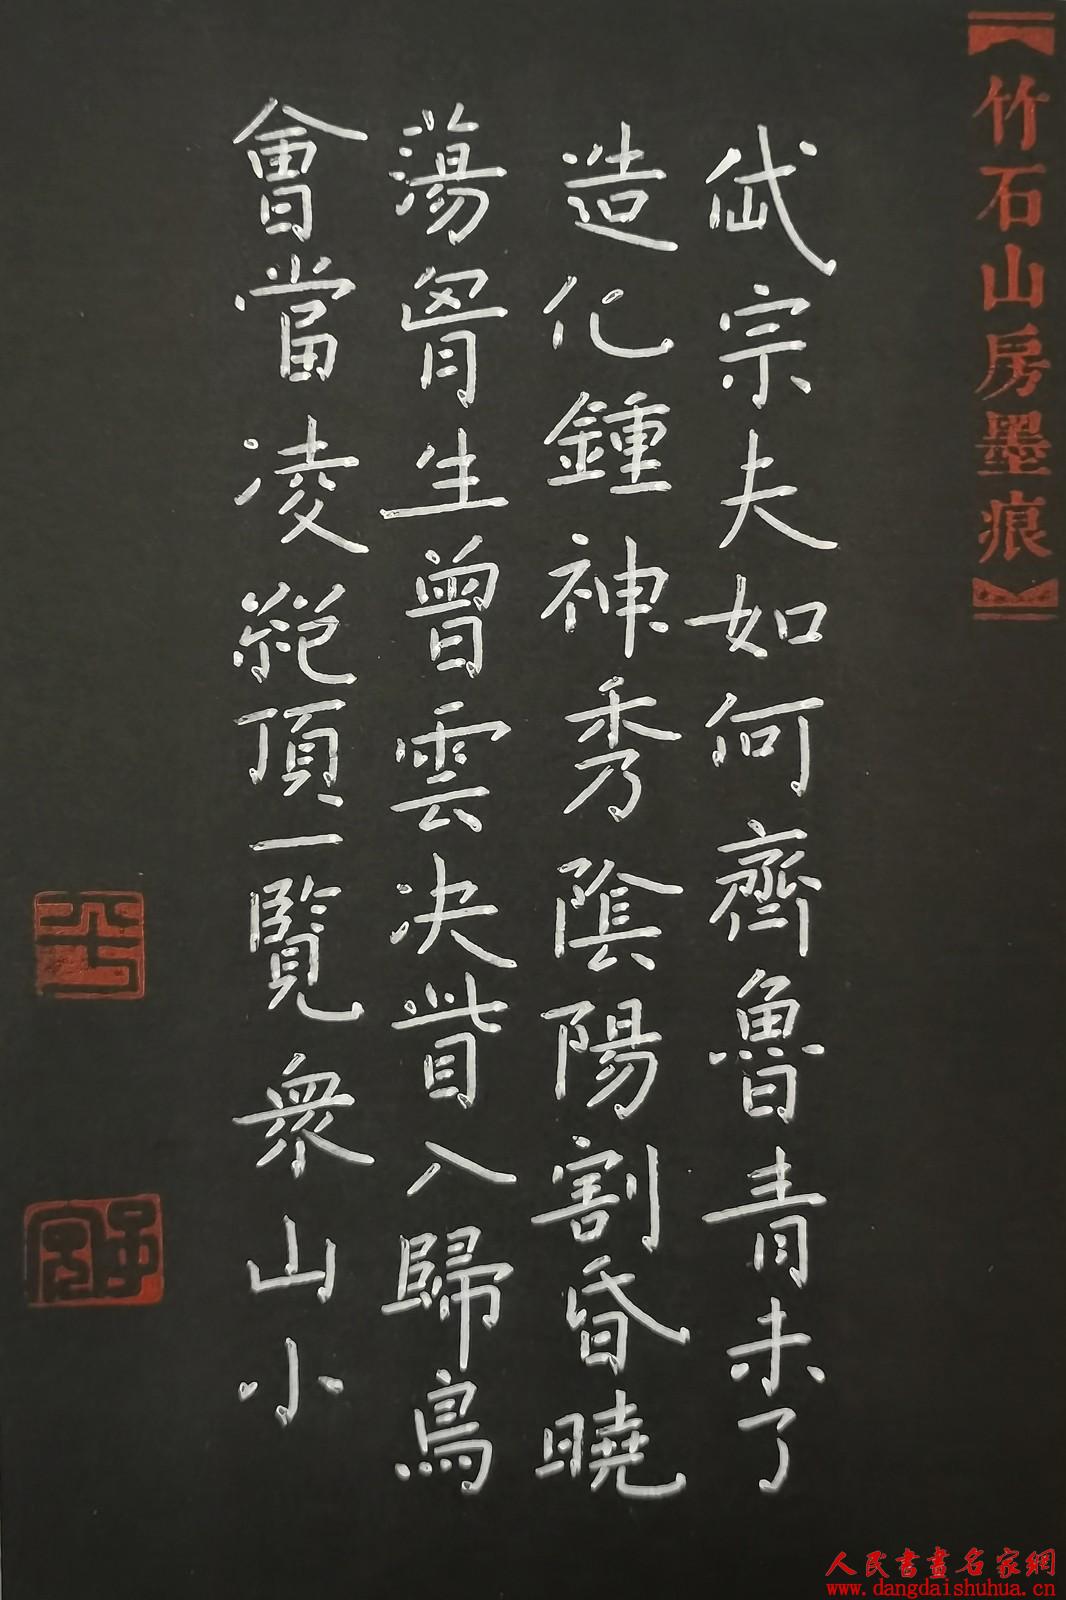 【竹石山房墨痕】
岱宗夫如何齊魯青未了
造化鍾神秀陰陽割昏曉
蕩胷生曾雲決眥入歸鳥
會當凌絕頂一覽衆山小
人民書畫名家網
www.dangdaishuhua.cn